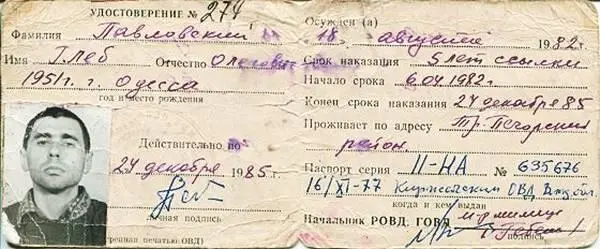 УДОСТОВЕРЕНИЕ № 274
Фамилия Павловский
Имя Глеб Отчество Олегович
1951 г. г. Одесса
год и место рождения
Действительно до
24 декабря 1985 г.
личная подпись
ОВД)
Осужден (а)
18 августа 1982 г.
Срок наказания 5 лет ссылки
Начало срока 6.04 1982 г.
Конец срока наказания 24 декабря 85
Проживает по адресу Тр. Печорский
район
Паспорт серия II-НА № 635676
16/XI-77 ОВД
когда и кем выдан
Начальник РОВД, ГОВД
подпись